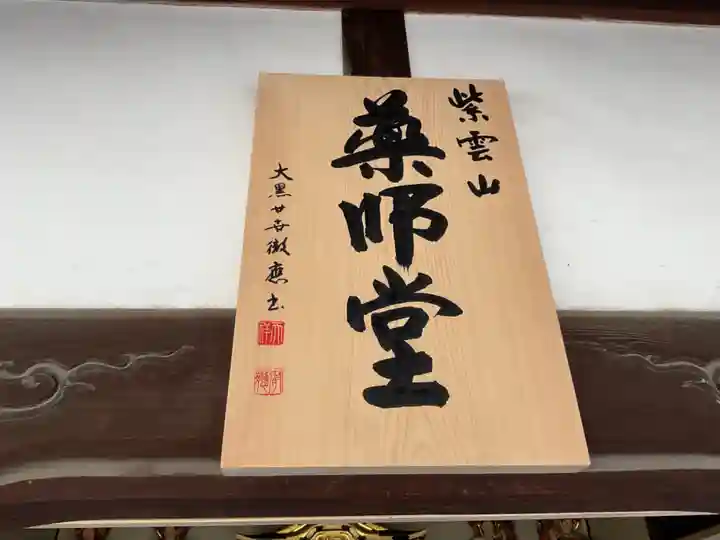 紫雲山
薬師堂
大黒廿世徹應書